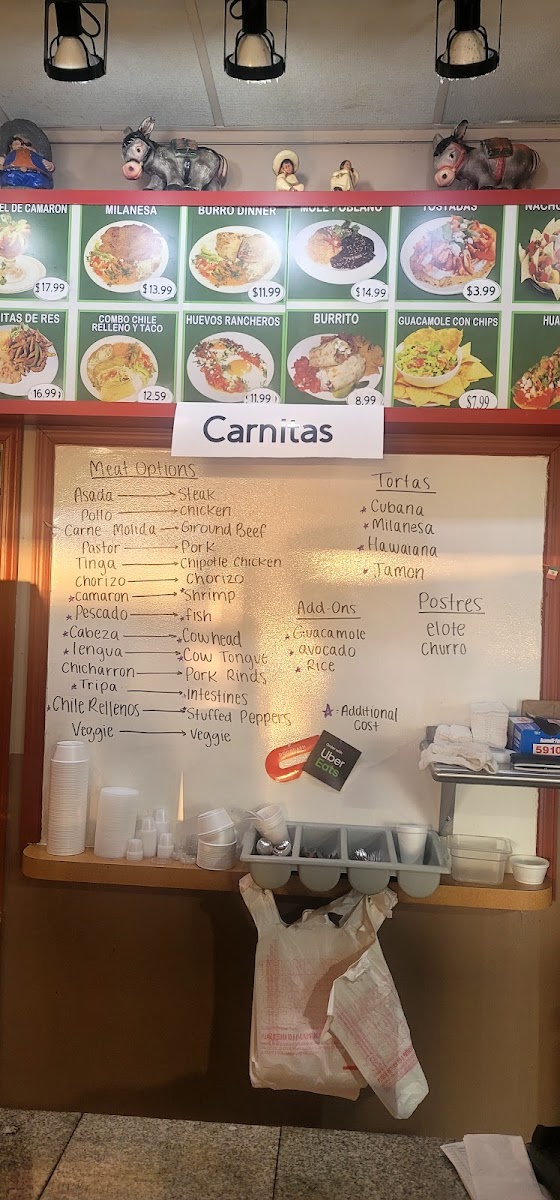 EL DE CAMARON
$17.99
MILANESA
$13.99
BURRO DINNER
$11.99
MOLE POBLANO
$14.99
TOSTADAS
$3.99
NACHO
ITAS DE RES
16.99
COMBO CHILE
RELLENO Y TACO
12.59
HUEVOS RANCHEROS
11.99
BURRITO
8.99
GUACAMOLE CON CHIPS
$7.99
HUA
Carnitas
Meat Options
Asada → Steak
Pollo → chicken
Carne Molida → Ground Beef
Pastor → Pork
Tinga → Chipotle Chicken
Chorizo → Chorizo
*camaron → *Shrimp
*Pescado → *fish
*Cabeza → *Cowhead
*lengua → *Cow Tongue
Chicharron → Pork Rinds
*Tripa → *Intestines
*Chile Rellenos → *Stuffed Peppers
Veggie → Veggie
Tortas
*Cubana
*Milanesa
*Hawaiana
*Jamon
Add-Ons
*Guacamole
*avocado
*Rice
Postres
elote
churro
*=Additional
cost
Uber
Eats
5910